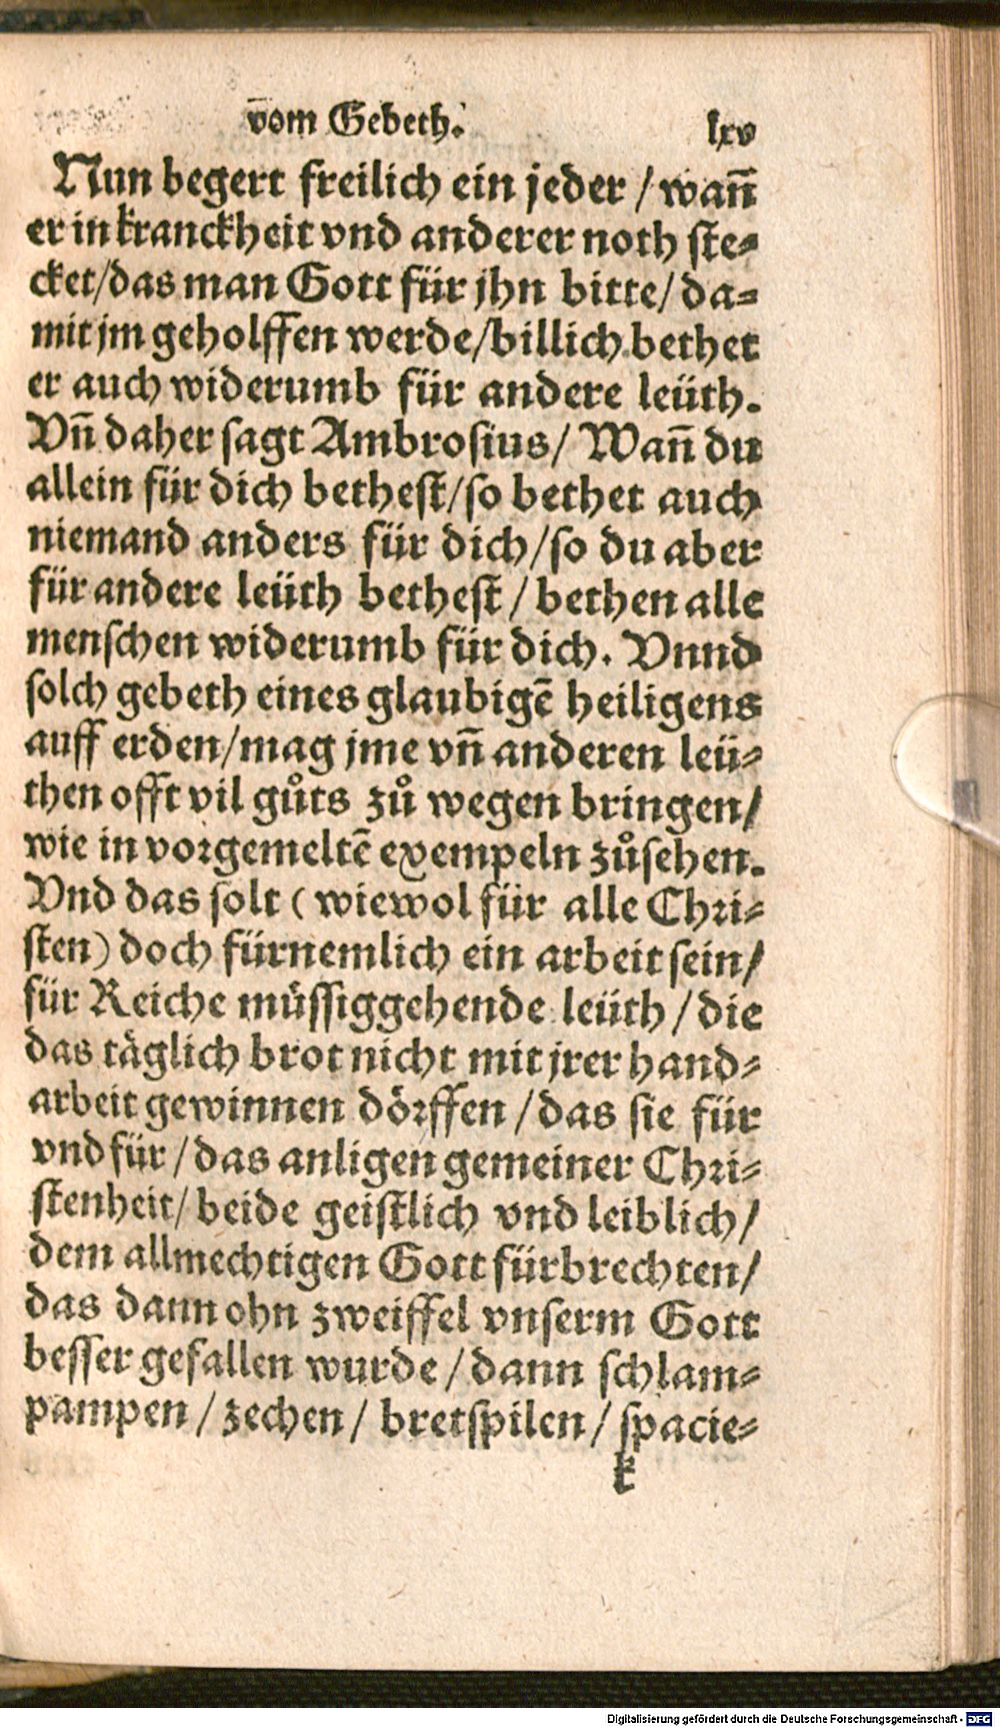 vom Gebeth. lxv
Nun begert freilich ein jeder / wañ
er in kranckheit vnd anderer noth ste⸗
cket/das man Gott für jhn bitte/ da⸗
mit jm geholffen werde/billich bethet
er auch widerumb für andere leüth.
Vñ daher sagt Ambrosius/ Wañ du
allein für dich bethest/so bethet auch
niemand anders für dich/so du aber
für andere leüth bethest / bethen alle
menschen widerumb für dich. Vnnd
solch gebeth eines glaubigē heiligens
auff erden/mag jme vñ anderen leü⸗
then offt vil gůts zů wegen bringen/
wie in vorgemeltē exempeln zůsehen.
Vnd das solt ( wiewol für alle Chri⸗
sten) doch fürnemlich ein arbeit sein/
für Reiche müssiggehende leüth / die
das täglich brot nicht mit jrer hand⸗
arbeit gewinnen dörffen / das sie für
vnd für / das anligen gemeiner Chri⸗
stenheit/ beide geistlich vnd leiblich/
dem allmechtigen Gott fürbrechten/
das dann ohn zweiffel vnserm Gott
besser gefallen wurde / dann schlam⸗
pampen / zechen/ bretspilen / spacie⸗
k
Digitalisierung gefördert durch die Deutsche Forschungsgemeinschaft - DFG